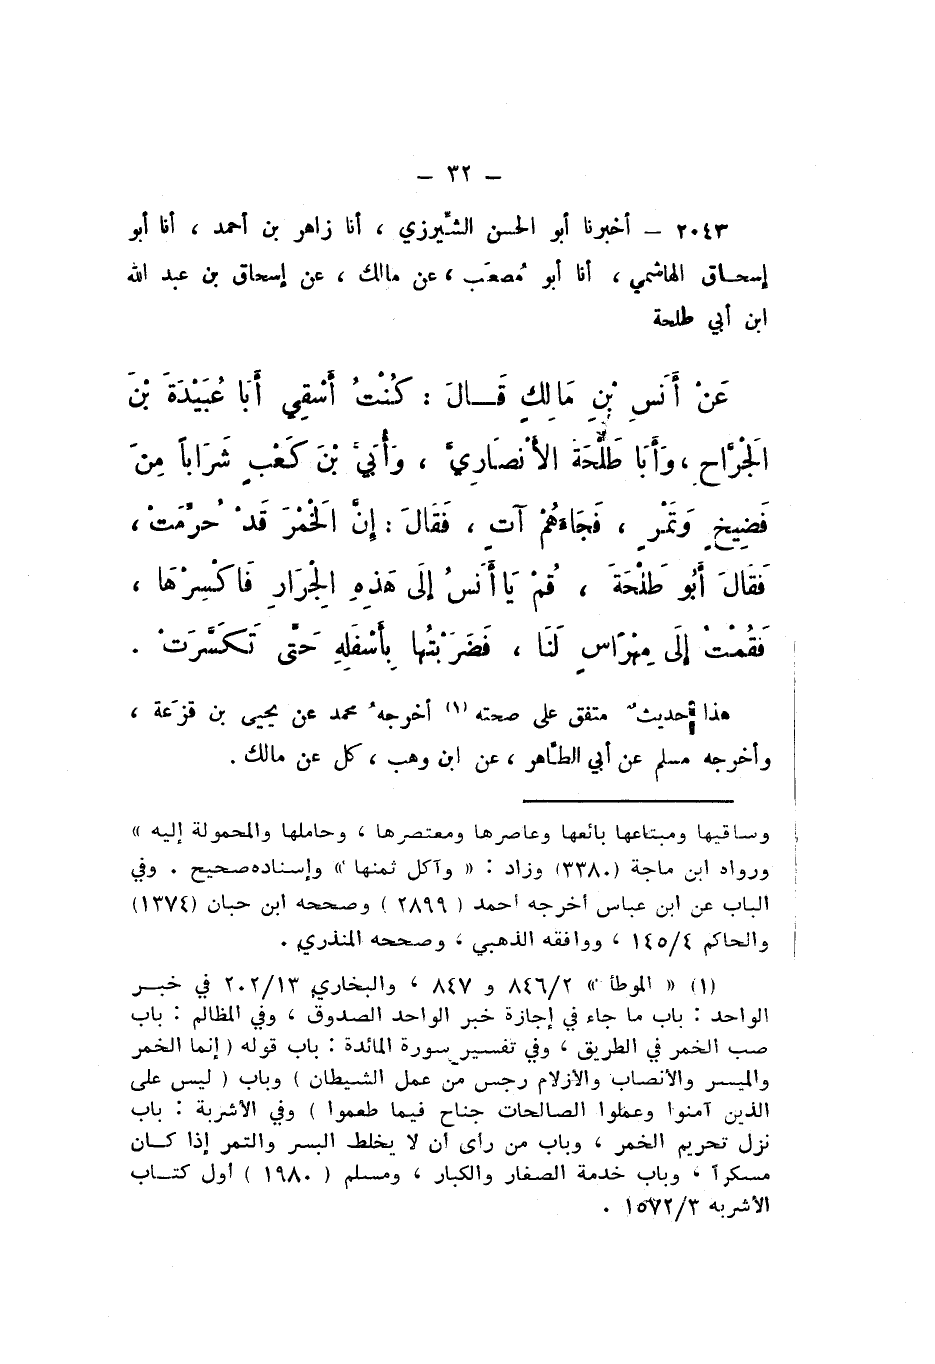 – ٣٢ –
٢٠٤٣ – أخبرنا أبو الحسن الشِّيرزي ، أنا زاهر بن أحمد ، أنا أبو
إسحـاق الهاشمي ، أنا أبو مُصعَب ، عن مالك ، عن إسحاق بن عبد الله
ابن أبي طلحة
عَنْ أَنَسِ بْنِ مَالِكٍ قَـالَ : كُنْتُ أَسْقِي أَبَا عُبَيْدَةَ بْنَ
الَجْرَّاحِ ، وَأَبَا طَلْحَةَ الأَنْصَارِيَّ ، وَأُبَيَّ بْنَ كَعْبٍ شَرَاباً مِنَ
فَضِيخٍ وَتَمْرٍ ، فَجَاءَهُمْ آتٍ ، فَقَالَ : إِنَّ الَخْمْرَ قَدْ حُرِّمَتْ ،
فَقَالَ أَبُو طَلْحَةَ ، قُمْ يَا أَنَسُ إِلَى هَذِهِ الِجْرَارِ فَاكْسِرْهَا ،
فَقُمْتُ إِلَى مِهْرَاسٍ لَنَا ، فَضَرَبْتُها بِأَسْفَلِهِ حَتَّى تَكَسَّرَتْ .
هذا حديثٌ متفق على صحته (١) أخرجهُ محمد عن يحيى بن قزَعة ،
وأخرجه مسلم عن أبي الطَّاهر ، عن ابن وهب ، كل عن مالك .
وساقيها ومبتاعها بائعها وعاصرها ومعتصرها ، وحاملها والمحمولة إليه »
ورواه ابن ماجة (٣٣٨٠) وزاد : « وآكل ثمنها » وإسناده صحيح . وفي
الباب عن ابن عباس أخرجه أحمد ( ٢٨٩٩ ) وصححه ابن حبان (١٣٧٤)
والحاكم ١٤٥/٤ ، ووافقه الذهبي ، وصححه المنذري .
(١) « الموطأ » ٨٤٦/٢ و ٨٤٧ ، والبخاري ٢٠٢/١٣ في خبـر
الواحد : باب ما جاء في إجازة خبر الواحد الصدوق ، وفي المظالم : باب
صب الخمر في الطريق ، وفي تفسير سورة المائدة : باب قوله ( إنما الخمر
والميسر والأنصاب والأزلام رجس من عمل الشيطان ) وباب ( ليس على
الذين آمنوا وعملوا الصالحات جناح فيما طعموا ) وفي الأشربة : باب
نزل تحريم الخمر ، وباب من رأى أن لا يخلط البسر والتمر إذا كـان
مسكراً ، وباب خدمة الصغار والكبار ، ومسلم ( ١٩٨٠ ) أول كتـاب
الأشربه ١٥٧٢/٣ .